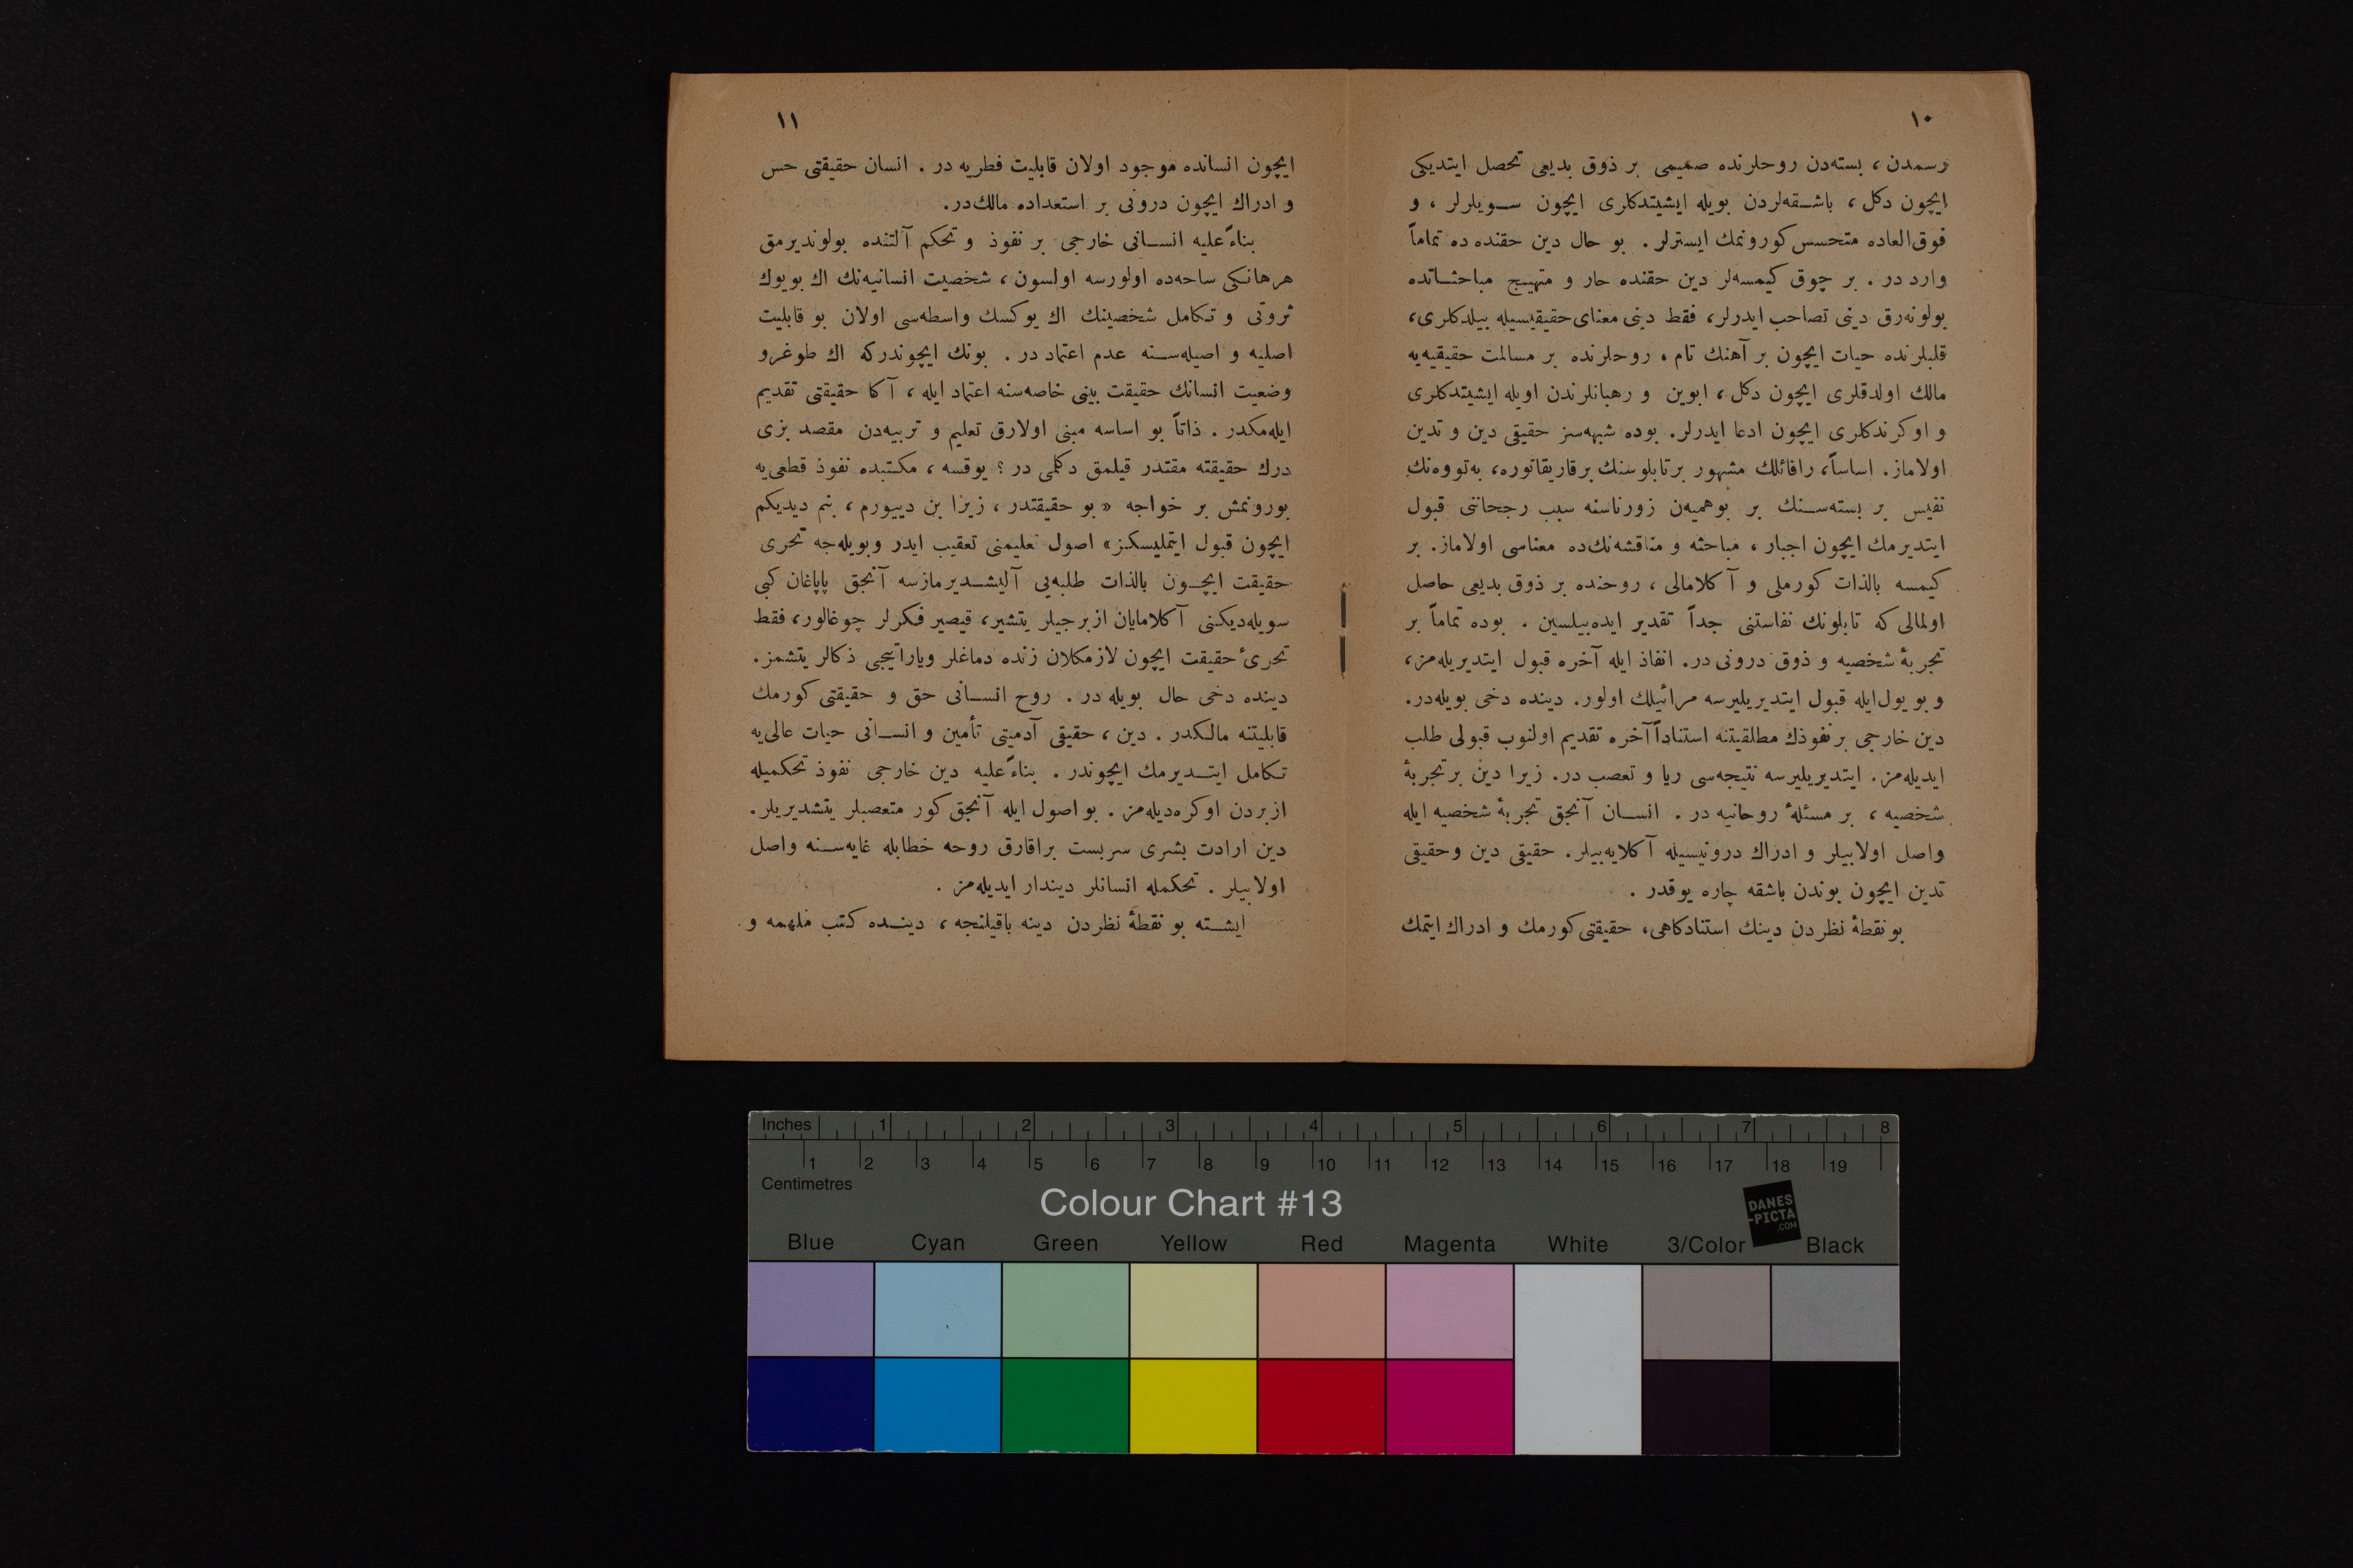 ١٠
رسمدن ، بسته‌دن روحلرنده صمیمی بر ذوق بدیعی تحصل ایتدیكی
ایچون دكل ، باشـقه‌لردن بویله ایشیتدكلری ایچون سـویلرلر ، و
فوق‌العاده متحسس كورونمك ایسترلر . بو حال دین حقنده ده تماماً
وارد در . بر چوق كیمسه‌لر دین حقنده حار و متهیج مباحثـاتده
بولونه‌رق دینی تصاحب ایدرلر، فقط دینی معنای حقیقیسیله بیلدكلری،
قلبلرنده حیات ایچون بر آهنك تام ، روحلرنده بر مسالمت حقیقیه‌یه
مالك اولدقلری ایچون دكل ، ابوین و رهبانلرندن اویله ایشیتدكلری
و اوكرندكلری ایچون ادعا ایدرلر. بوده شبهه‌سز حقیقی دین و تدین
اولاماز. اساساً، رافائلك مشهور بر تابلوسنك بر قاریقاتوره، به‌تووه‌نك
نفیس بر بسته‌سـنك بر بوهمیه‌ن زورناسنه سبب رجحاننی قبول
ایتدیرمك ایچون اجبار ، مباحثه و مناقشه‌نك‌ده معناسی اولاماز. بر
كیمسه بالذات كورملی و آكلامالی ، روحنده بر ذوق بدیعی حاصل
اولمالی كه تابلونك نفاستنی جداً تقدیر ایده‌بیلسین . بوده تماماً بر
تجربهٔ شخصیه و ذوق درونی در. انفاذ ایله آخره قبول ایتدیریله‌مز،
و بو یول‌ایله قبول ایتدیریلیرسه مرائیلك اولور. دینده دخی بویله‌در.
دین خارجی بر نفوذك مطلقیتنه استناداً آخره تقدیم اولنوب قبولی طلب
ایدیله‌مز. ایتدیریلیرسه نتیجه‌سی ریا و تعصب در. زیرا دین بر تجربهٔ
شخصیه ، بر مسئلهٔ روحانیه در . انسـان آنجق تجربهٔ شخصیه ایله
واصل اولابیلر و ادراك درونیسیله آكلایه‌بیلر. حقیقی دین و حقیقی
تدین ایچون بوندن باشقه چاره یوقدر .
بو نقطهٔ نظردن دینك استنادكاهی، حقیقتی كورمك و ادراك ایتمك
١١
ایچون انسانده موجود اولان قابلیت فطریه در . انسان حقیقتی حس
و ادراك ایچون درونی بر استعداده مالك‌در.
بناءً علیه انسـانی خارجی بر نفوذ و تحكم آلتنده بولوندیرمق
هرهانـكی ساحه‌ده اولورسه اولسون ، شخصیت انسانیه‌نك اك بویوك
ثروتی و تـكامل شخصینك اك یوكسك واسطه‌سی اولان بو قابلیت
اصلیه و اصیله‌سـنه عدم اعتماد در . بونك ایچوندركه اك طوغرو
وضعیت انسانك حقیقت بینی خاصه‌سنه اعتماد ایله ، آكا حقیقتی تقدیم
ایله‌مكدر . ذاتاً بو اساسه مبنی اولارق تعلیم و تربیه‌دن مقصد بزی
درك حقیقته مقتدر قیلمق دكلمی در ؟ یوقسه ، مكـتبده نفوذ قطعی‌یه
بورونمش بر خواجه « بو حقیقتدر ، زیرا بن دییورم ، بنم دیدیكم
ایچون قبول ایتملیسكـز » اصول تعلیمنی تعقیب ایدر و بویله‌جه تحری
حقیقت ایچـون بالذات طلبه‌یی آلیشـدیرمازسه آنجق پاپاغان كبی
سویله‌دیكنی آكلامایان ازبرجیلر یتشیر، قیصیر فـكرلر چوغالور، فقط
تحریٔ حقیقت ایچون لازمكلان زنده دماغلر و یاراتیجی ذكالر یتشمز.
دینده دخی حال بویله در . روح انسـانی حق و حقیقتی كورمك
قابلیتنه مالـكدر . دین ، حقیقی آدمیتی تأمین و انسـانی حیات عالی‌یه
تـكامل ایتـدیرمك ایچوندر . بناءً علیه دین خارجی نفوذ تحكمیله
ازبردن اوكره‌دیله‌مز . بو اصول ایله آنجق كور متعصبلر یتشدیریلر.
دین ارادت بشری سربست براقارق روحه خطابله غایه‌سـنه واصل
اولابیلر . تحكمله انسانلر دیندار ایدیله‌مز .
ایشـته بو نقطهٔ نظردن دینه باقیلنجه ، دینـده كتب ملهمه و
Inches 1 2 3 4 5 6 7 8
1 2 3 4 5 6 7 8 9 10 11 12 13 14 15 16 17 18 19
Centimetres
Colour Chart #13
DANES
-PICTA
.COM
Blue Cyan Green Yellow Red Magenta White 3/Color Black